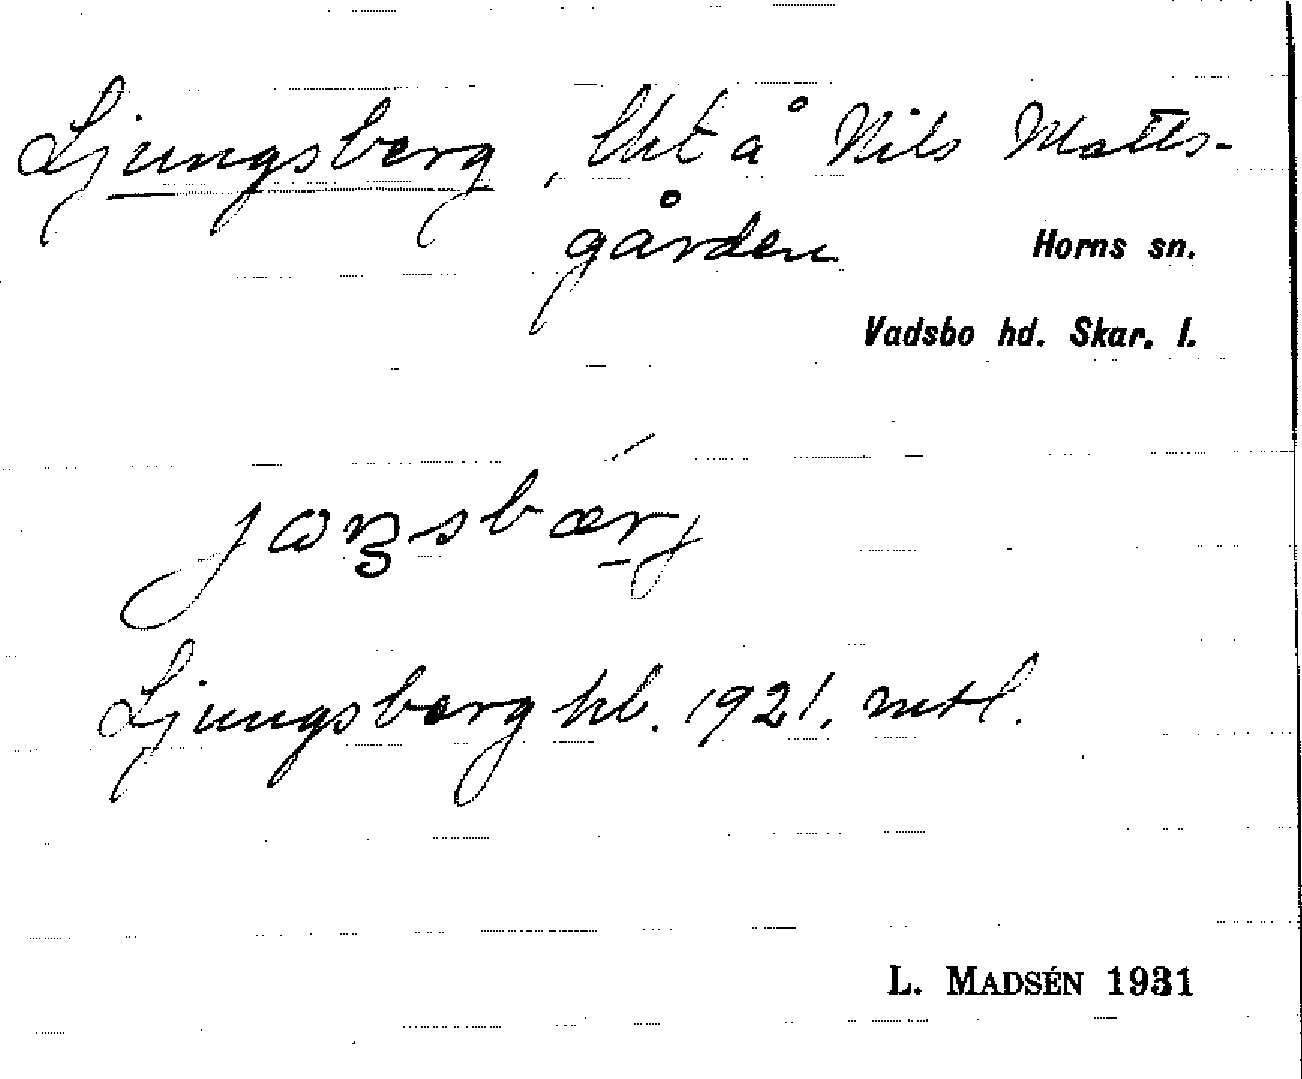 Ljungsberg, lht å Nils Matts-
gården
Horns sn.
Vadsbo hd. Skar. l.
Ljungsberg hl. 1921. mtl.
L. MADSÉN 1931